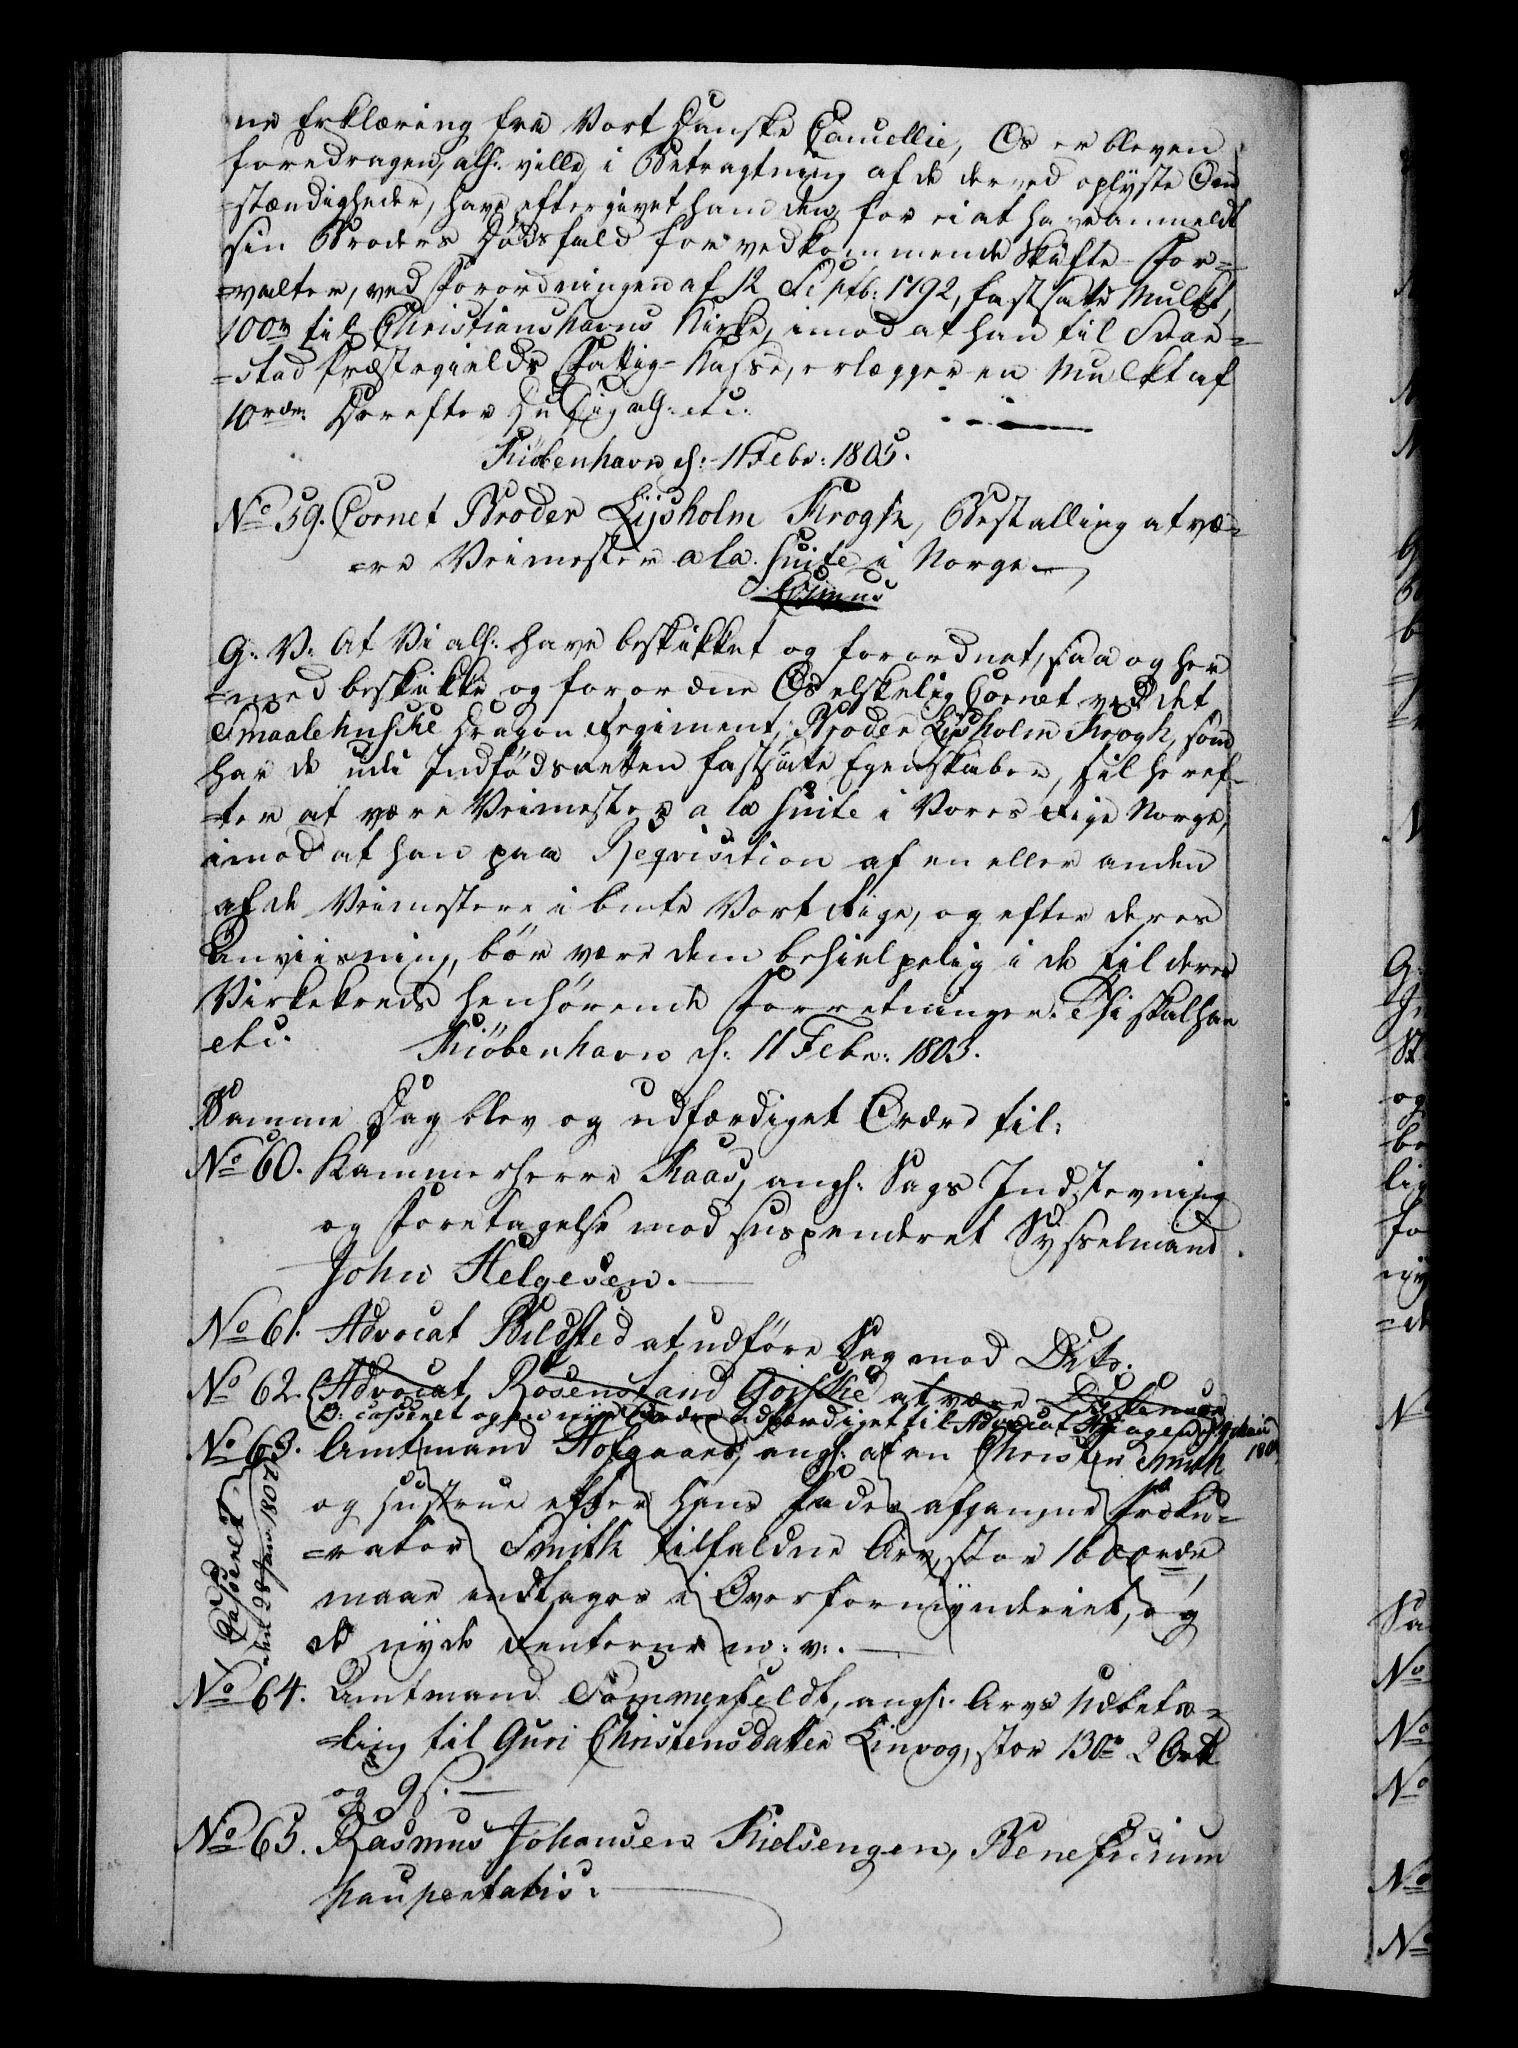 ne Erklæring fra Vort Danske Cancellie, Os er bleven
foredragen, alf: ville, i Betragtning af de derved oplyste Om
=stændigheder, have eftergivet ham den, for ei at have anmeldt
sin Broders Dødsfald for vedkommende Skifte-For=
=valter, ved Forordningen af 12 Septb: 1792, fastsatte Mulkt,
100 til Christianshavns Kirke, imod at han til
=stad Præstegields Fattig-Kasse, erlægger en Mulkt af
10 rdr. Derefter Du Dig alf: etc:
Kiöbenhavn d: 11 Febr: 1805.
No 59. Cornet Broder Lijsholm Krogh, Bestalling at væ=
=re Veimester a la Suite i Norge.
G: V: At Vi alf: have beskikket og forordnet, saa og her
=med beskikke og forordne Os elskelig Cornet ved det
Smaalehnske Dragon Regiment, Broder Lijsholm Krogh, som
har de udi Indfödsretten fastsatte Egenskaber, til heref=
=ter at være Veimester a la Suite i Vores Rige Norge,
imod at han paa Reqvisition af en eller anden
af de Veimestere i bmte Vort Rige, og efter deres
Anviisning, bör være dem behielpelig i de til deres
Virkekreds henhörende Forretninger. Thi skal han
etc. Kiöbenhavn d: 11 Febr: 1805.
Samme Dag blev og udfærdiget Ordre til:
No 60. Kammerherre Kaas, angh: Sags Indstevning
og Foretagelse mod suspenderet Sysselmand
John Helgesen.
No 61. Advocat Bildsted at udföre Sag mod Dito.
No 62. Advocat Rosenstand Goiske at være
B: casseret og en nye Ordre udfærdiget til Advocat
No 63. Amtmand Hofgaard, angh: at en Christen Smith
og Hustrue efter hans Fader afgangne Proku=
=rator Smith tilfaldne Arv, stor 1600 rdr,
maae indtages i Overformynderiet, og
de nyde Renterne m: v:.
Casseret
den 28 1805
No 64. Amtmand Sommerfeldt, angh: Arvs Udbeta=
=ling til Guri Christensdatter Linvog, stor 130 r 2 Ort
og 9 s.
No 65. Rasmus Johansen Kielsengen, Beneficium
paupertatis.